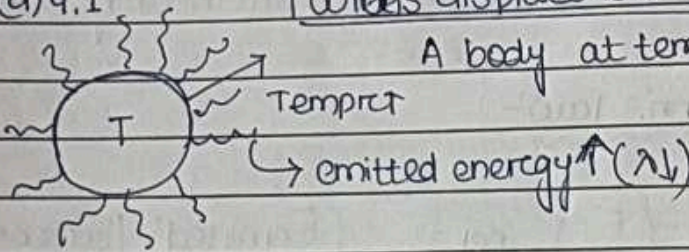 (a) 4.1
A body at tem
T
Temprct
→ emitted enercgy↑(λ↓)